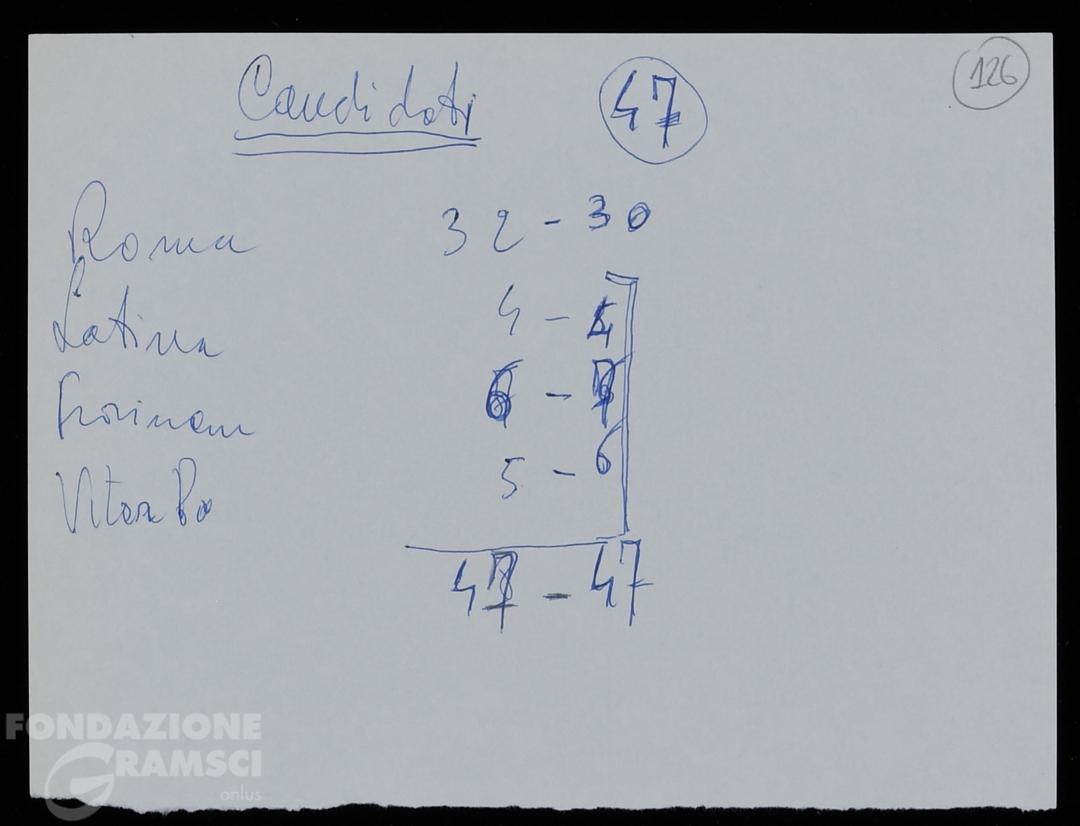 126
Candidati 47
Roma 32 - 30
Latina 4 -
Frosinone 6 -
Viterbo 5 - 6
47 - 47
FONDAZIONE
GRAMSCI
onlus